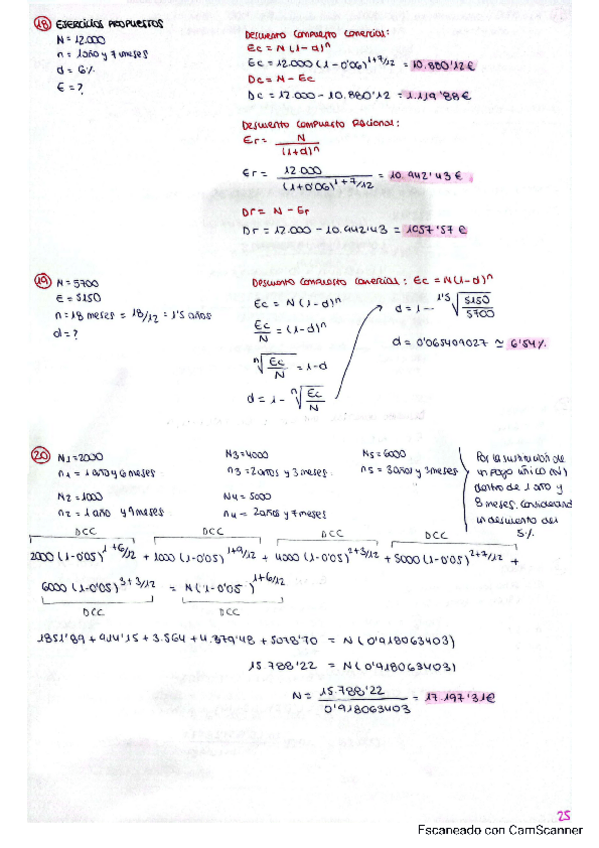 18 EJERCICIOS PROPUESTOS
N = 12.000
n = 1 año y 7 meses
d = 6%
E = ?
Descuento compuesto comercial:
Ec = N (1-d)^n
Ec = 12.000 (1-0'06)^1+7/12 = 10.880'12 €
Dc = N - Ec
Dc = 12.000 - 10.880'12 = 1.119'88 €
Descuento compuesto Racional:
Er = N / (1+d)^n
Er = 12.000 / (1+0'06)^1+7/12 = 10.942'43 €
Dr = N - Er
Dr = 12.000 - 10.942'43 = 1057'57 €
19 N = 5700
E = 5150
n = 18 meses = 18/12 = 1'5 años
d = ?
Descuento compuesto comercial: Ec = N(1-d)^n
Ec = N(1-d)^n
Ec/N = (1-d)^n
n√Ec/N = 1-d
d = 1 - n√Ec/N
d = 1 - 1'5√5150/5700
d = 0'065409027 ≃ 6'54%
20 N1 = 2000
n1 = 1 año y 6 meses
N2 = 1000
n2 = 1 año y 9 meses
N3 = 4000
n3 = 2 años y 3 meses
N4 = 5000
n4 = 2 años y 7 meses
N5 = 6000
n5 = 3 años y 3 meses
Por la sustitución de
un pago único (N)
dentro de 1 año y
8 meses. Considerand
un descuento del
5%.
DCC DCC DCC DCC
2000 (1-0'05)^1+6/12 + 1000 (1-0'05)^1+9/12 + 4000 (1-0'05)^2+3/12 + 5000 (1-0'05)^2+7/12 +
6000 (1-0'05)^3+3/12 = N (1-0'05)^1+6/12
DCC DCC
1851'89 + 914'15 + 3.564 + 4.379'48 + 5078'70 = N (0'918063403)
15 788'22 = N (0'918063403)
N = 15.788'22 / 0'918063403 = 17.197'31€
25
Escaneado con CamScanner